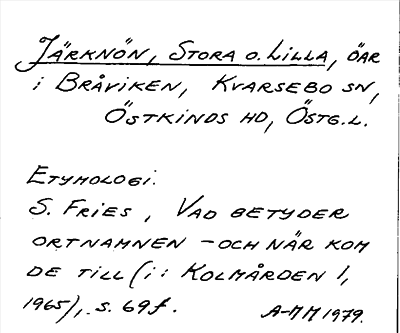 Järknön, Stora o. Lilla, öar
i Bråviken, Kvarsebo sn,
Östkinds hd, Östg.l.
Etymologi.
S. Fries, Vad betyder
ortnamnen - och när kom
de till (i: Kolmården 1,
1965), s. 69f. A-MM 1979.